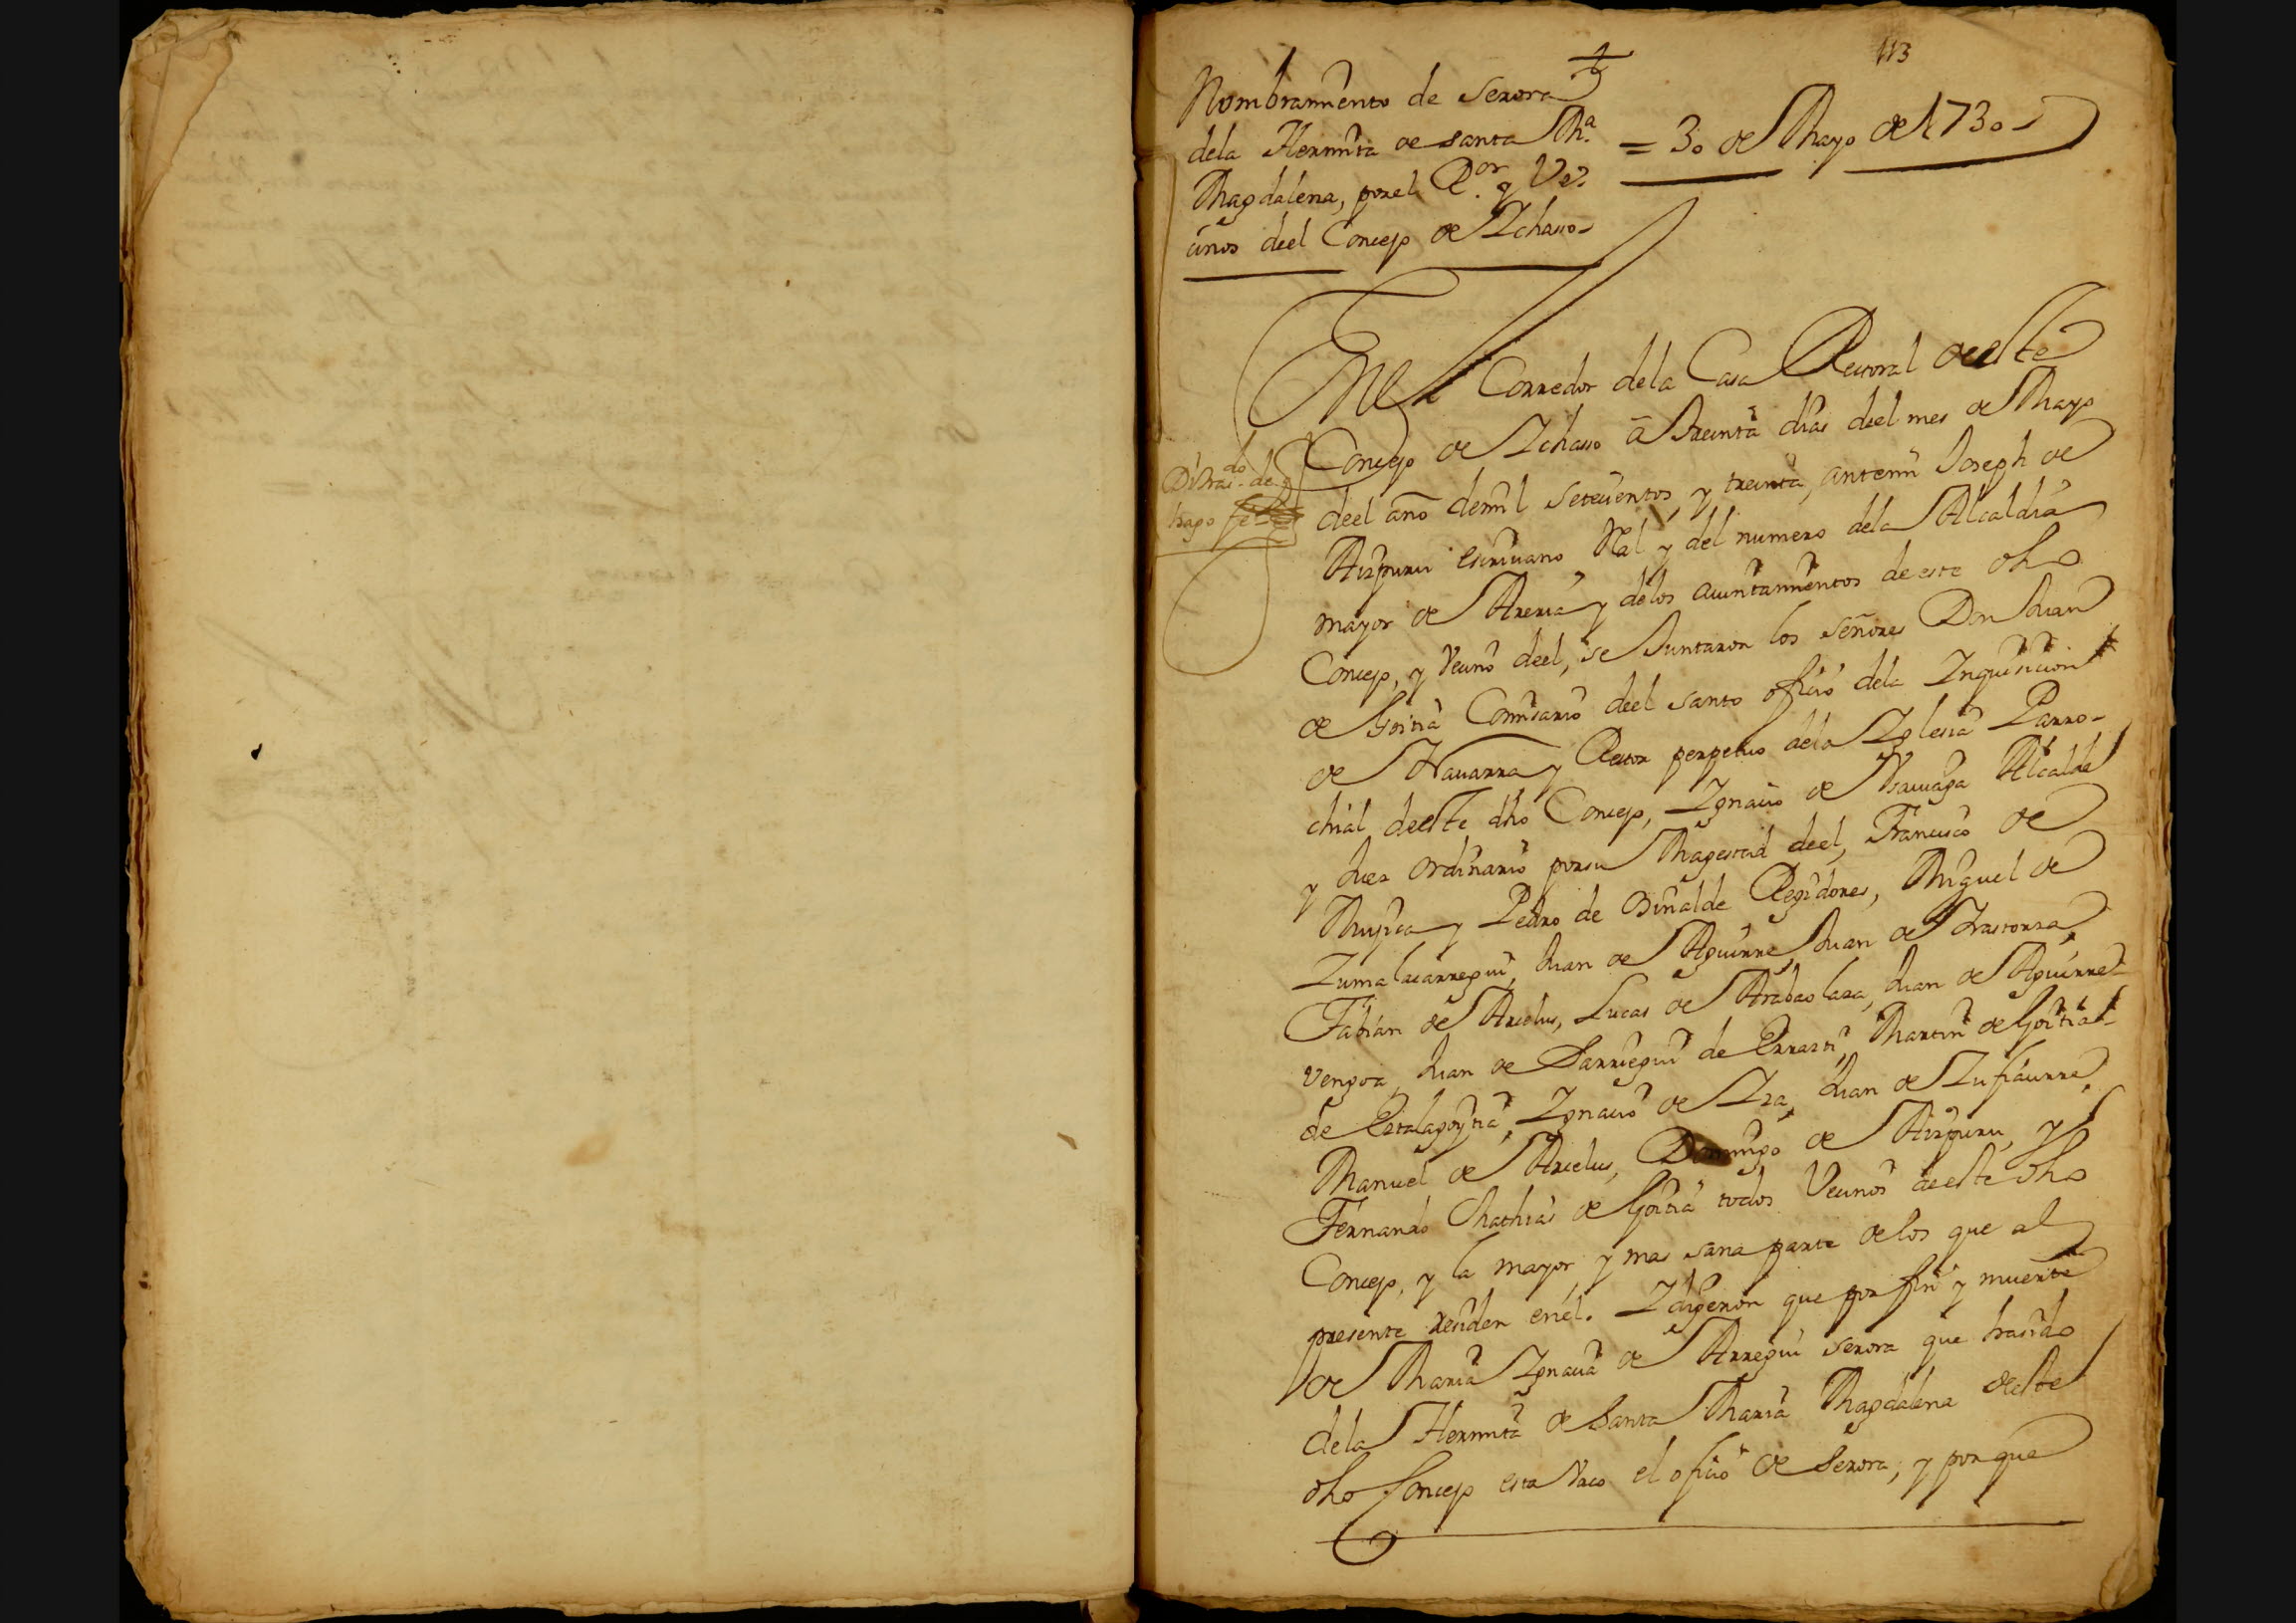 113
Nombramiento de Serora
dela Hermita de santa M.ª
Magdalena, por el R.or y Ve=
cinos deel Concejo de Ichasso
= 30 de Mayo de 1730
En el Corredor dela Casa Rectoral de este
Concejo de Ichasso â treinta dias deel mes de Mayo
deel año de mil setecientos, y treinta, ante mi Joseph de
Aizpuru escrivano Rãl y del numero dela Alcaldia
mayor de Areria y delos aiuntamientos de este dho
Concejo, y Vecino deel, se Juntaron los señores Don Juan
de Goitia Comisario deel santo oficio dela Inquisicion
de Navarra y Rector perpetuo dela Iglesia Parro-
chial de este dho Concejo, Ignacio de Alcalde
y Juez ordinario por su Magestad deel, Francisco de
Muxica y Pedro de Regidores, Miguel de
Zumalacarregui, Juan de Aguirre, Juan de
Fabian de Arcelus, Lucas de Arabaolaza, Juan de Aguirre
vengoa, Juan de Sarriegui de Errazti, Martin de Goitia
de Eztalagoytia, Ignacio de Iza, Juan de
Manuel de Arcelus, Domingo de Aizpuru, y
Fernando Mathias de Goitia todos Vecinos de este dho
Concejo, y la mayor y mas sana parte delos que al
presente residen enel. I dixeron que por fin y muerte
de Maria Ignacia de Arregui serora que ha sido
dela Hermita de Santa Maria Magdalena de este
dho Concejo esta Vaco el oficio de Serora, y por que
hago fe